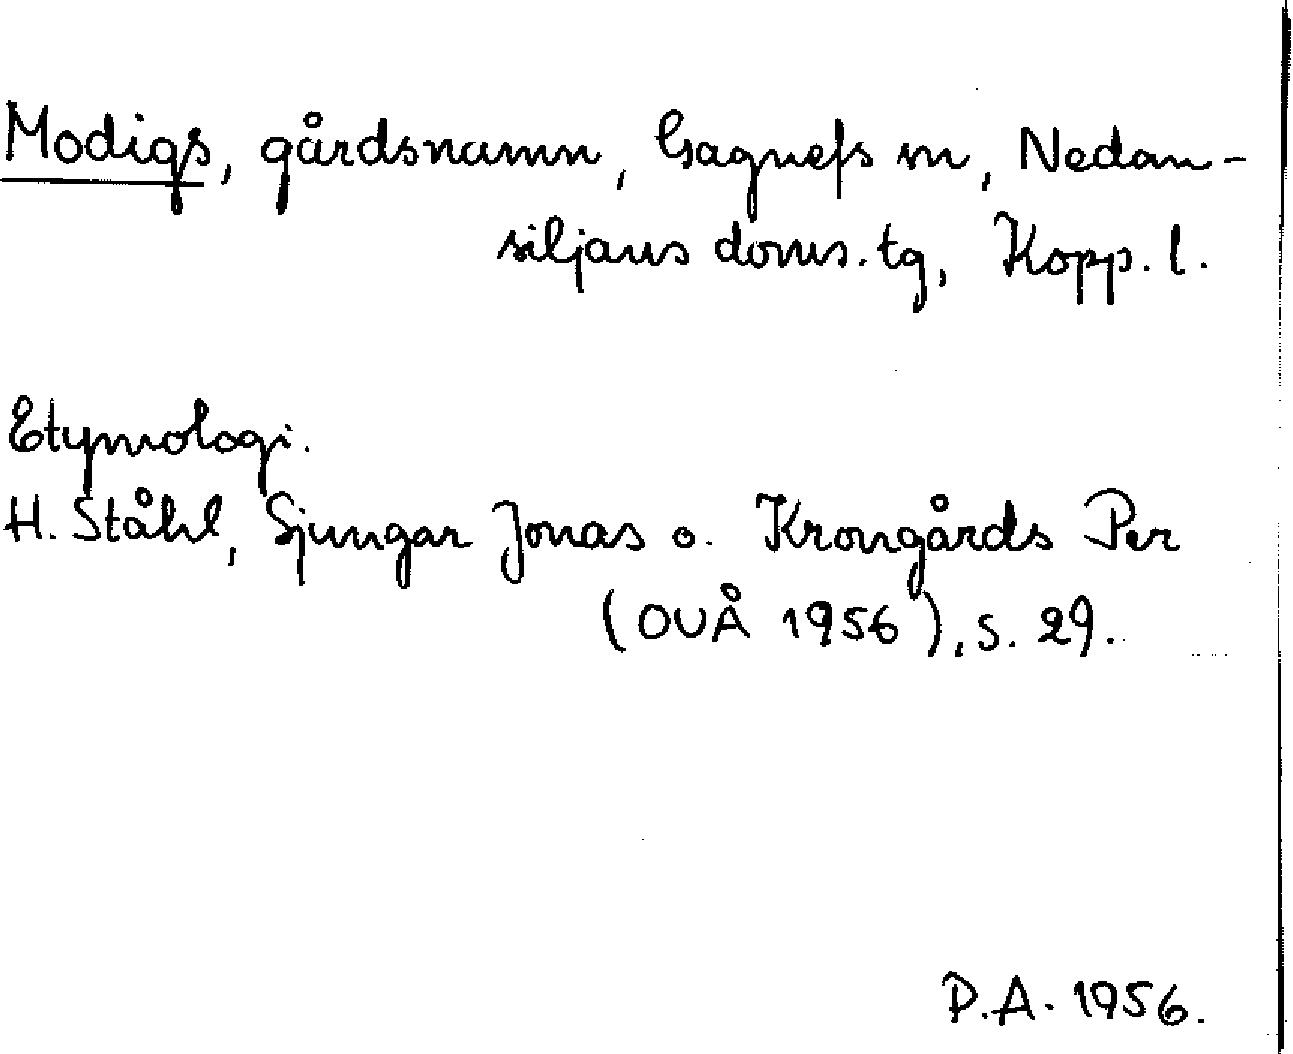 Modigs, gårdsnamn, Gagnefs sn, Nedan-
siljans doms.tg, Kopp. l.
Etymologi.
H. Ståhl, Sjungar Jonas o. Krongårds Per
(OUÅ 1956), s. 29.
P.A. 1956.